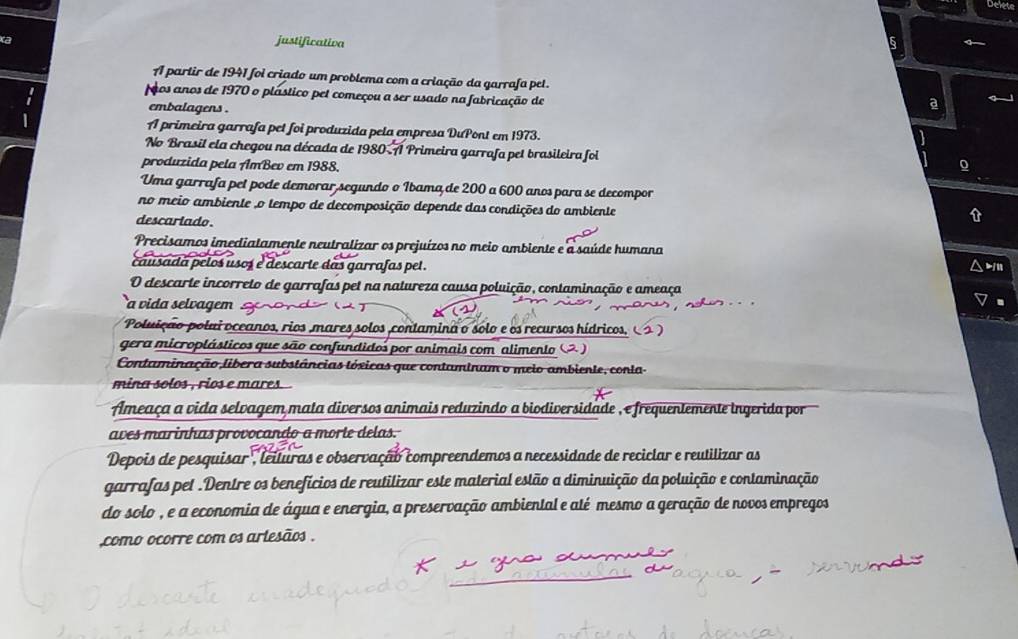 Delete
justificativa
A partir de 1941 foi criado um problema com a criação da garrafa pet.
Nos anos de 1970 o plástico pet começou a ser usado na fabricação de
embalagens .
A primeira garrafa pet foi produzida pela empresa DuPont em 1973.
No Brasil ela chegou na década de 1980 . A Primeira garrafa pet brasileira foi
produzida pela AmBev em 1988.
Uma garrafa pet pode demorar, segundo o Ibama, de 200 a 600 anos para se decompor
no meio ambiente ,o tempo de decomposição depende das condições do ambiente
descartado.
na
Precisamos imediatamente neutralizar os prejuízos no meio ambiente e a saúde humana
causados pelo de
causada pelos usos e descarte das garrafas pet.
O descarte incorreto de garrafas pet na natureza causa poluição, contaminação e ameaça
a vida selvagem gerando (2) * (1) em rios, mares, solos...
Poluição polui oceanos, rios ,mares,solos ,contamina o solo e os recursos hídricos, (1)
gera microplásticos que são confundidos por animais com alimento (2)
Contaminação,libera substâncias tóxicas que contaminam o meio ambiente, conta-
mina solos , rios e mares
*
Ameaça a vida selvagem,mata diversos animais reduzindo a biodiversidade , e frequentemente ingerida por
aves marinhas provocando a morte delas.
FAZER
Depois de pesquisar , leituras e observação compreendemos a necessidade de reciclar e reutilizar as
garrafas pet .Dentre os benefícios de reutilizar este material estão a diminuição da poluição e contaminação
do solo , e a economia de água e energia, a preservação ambiental e até mesmo a geração de novos empregos
,como ocorre com os artesãos .
* e gera acumulo de agua, servindo
O descarte inadequado pode acumular
ideal de doenças